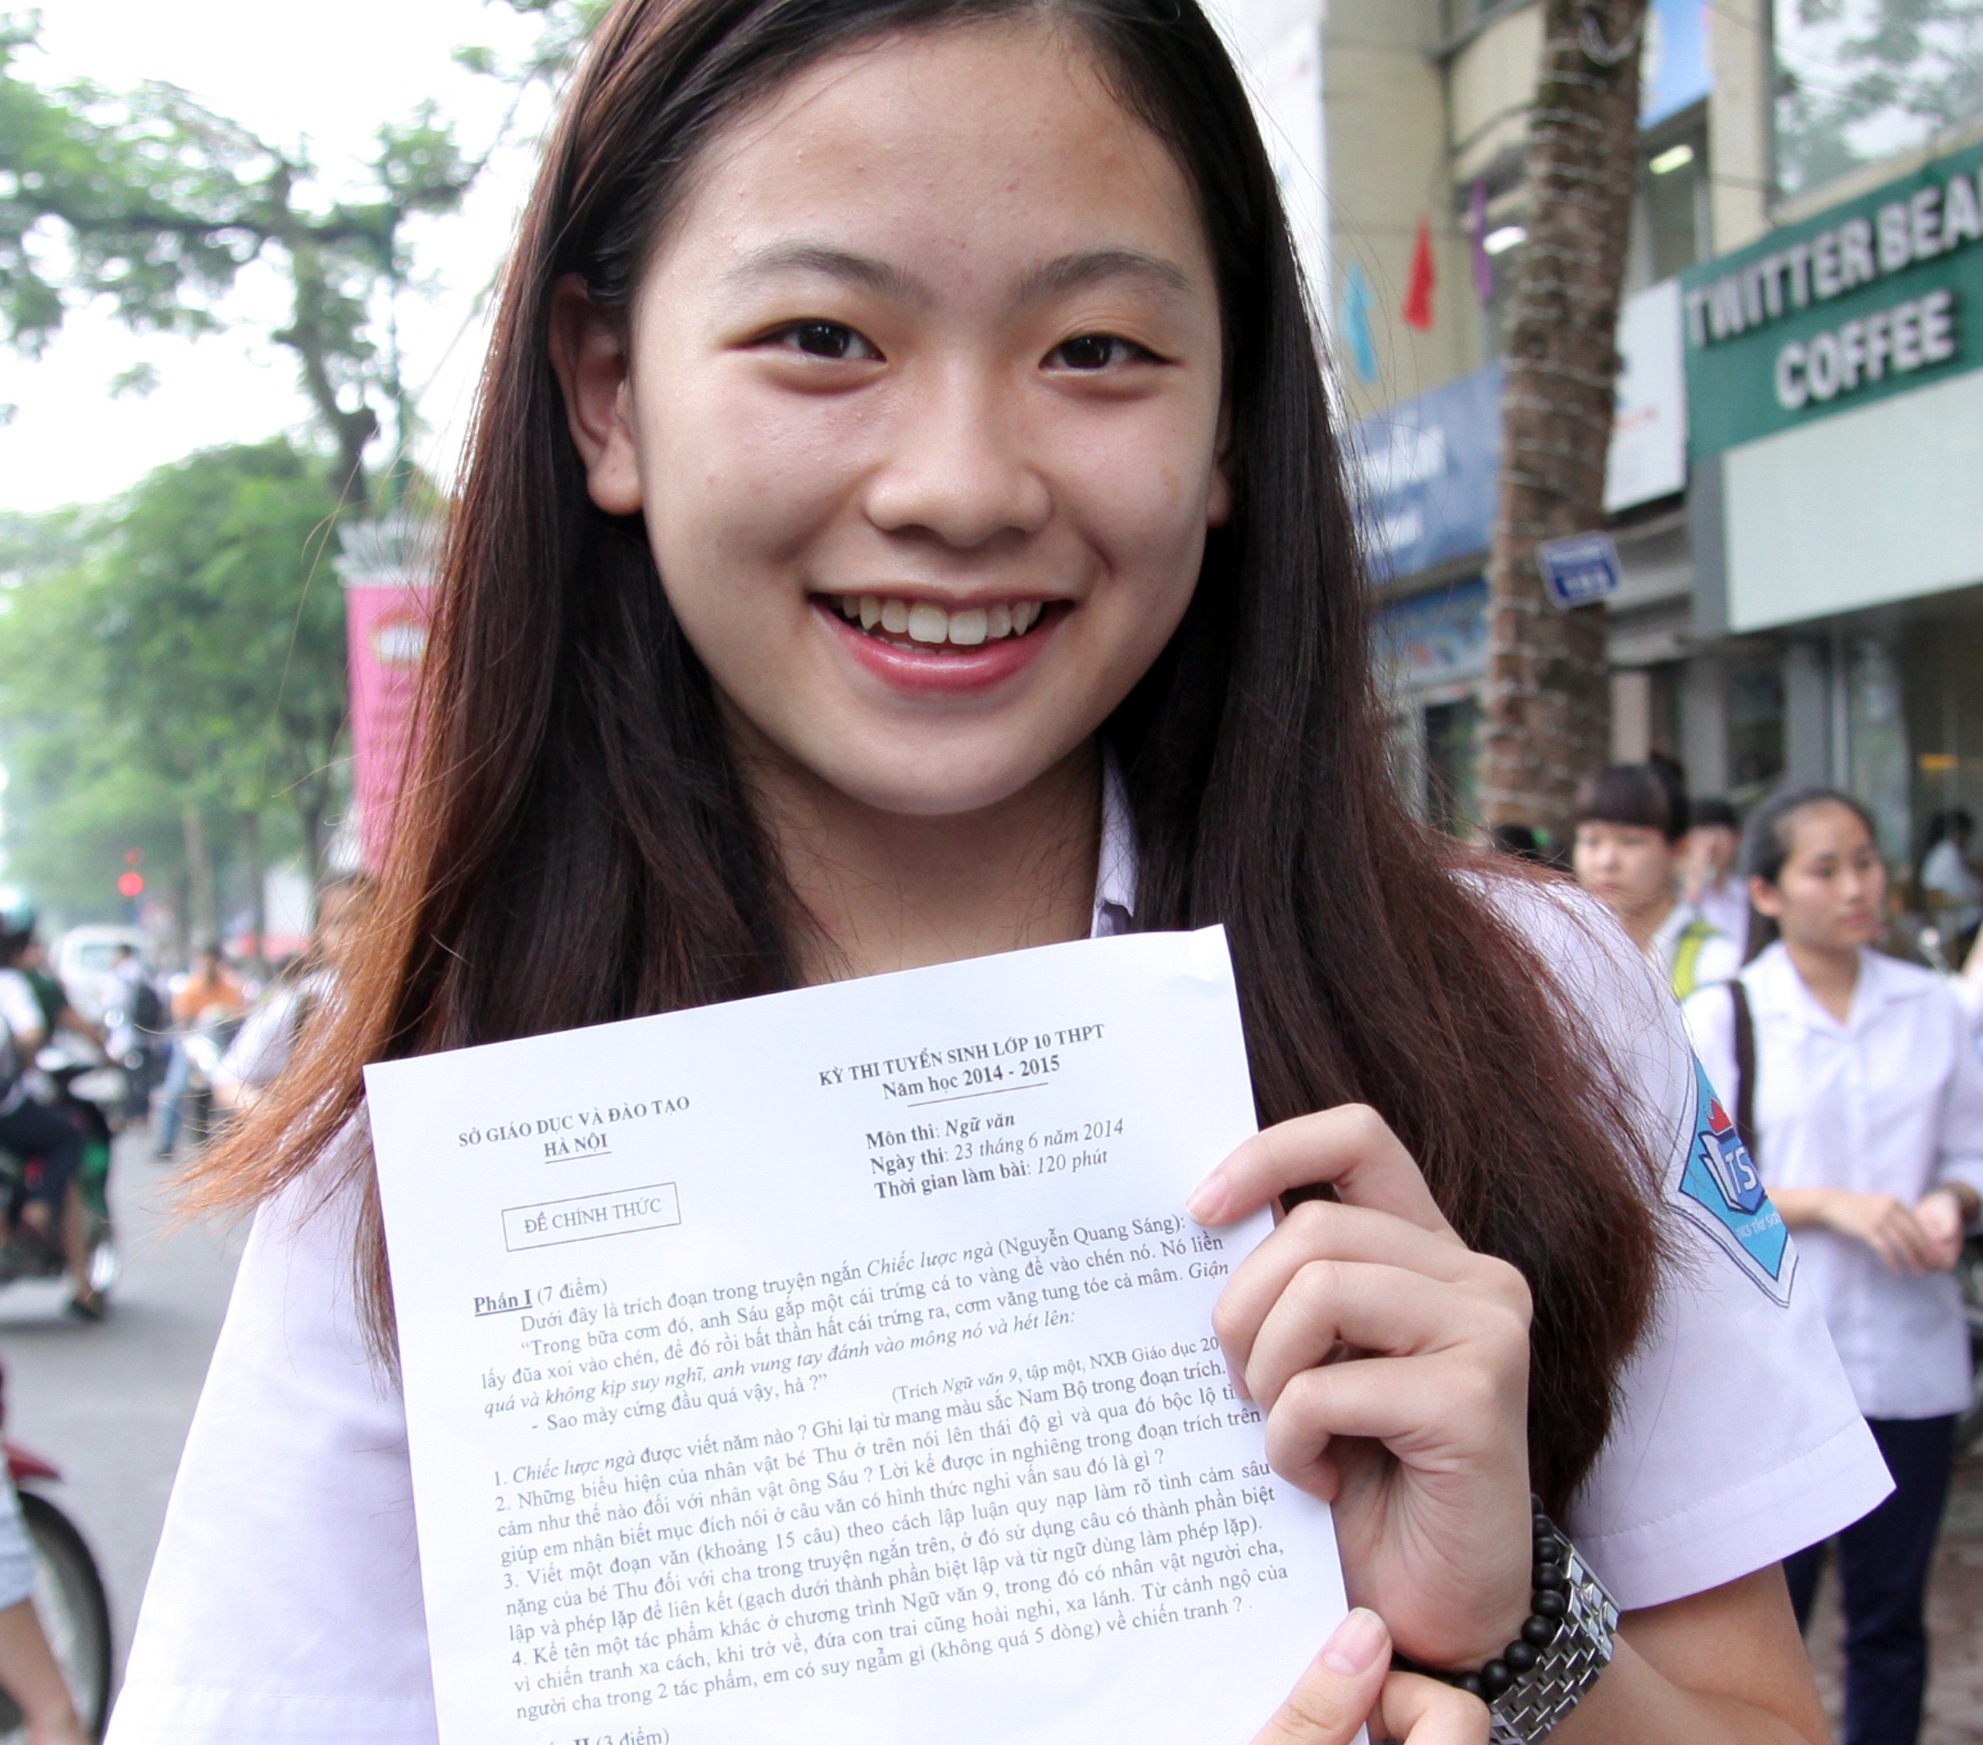 TWITTER BEA
COFFEE
SỞ GIÁO DỤC VÀ ĐÀO TẠO
HÀ NỘI
ĐỀ CHÍNH THỨC
KỲ THI TUYỂN SINH LỚP 10 THPT
Năm học 2014 - 2015
Môn thi: Ngữ văn
Ngày thi: 23 tháng 6 năm 2014
Thời gian làm bài: 120 phút
Phần I (7 điểm)
Dưới đây là trích đoạn trong truyện ngắn Chiếc lược ngà (Nguyễn Quang Sáng):
“Trong bữa cơm đó, anh Sáu gắp một cái trứng cá to vàng để vào chén nó. Nó liền
lấy đũa xoi vào chén, để đó rồi bất thần hất cái trứng ra, cơm văng tung tóe cả mâm. Giận
quá và không kịp suy nghĩ, anh vung tay đánh vào mông nó và hét lên:
- Sao mày cứng đầu quá vậy, hả ?”
(Trích Ngữ văn 9, tập một, NXB Giáo dục 20
1. Chiếc lược ngà được viết năm nào ? Ghi lại từ mang màu sắc Nam Bộ trong đoạn trích.
2. Những biểu hiện của nhân vật bé Thu ở trên nói lên thái độ gì và qua đó bộc lộ tì
cảm như thế nào đối với nhân vật ông Sáu ? Lời kể được in nghiêng trong đoạn trích trên
giúp em nhận biết mục đích nói ở câu văn có hình thức nghi vấn sau đó là gì ?
3. Viết một đoạn văn (khoảng 15 câu) theo cách lập luận quy nạp làm rõ tình cảm sâu
nặng của bé Thu đối với cha trong truyện ngắn trên, ở đó sử dụng câu có thành phần biệt
lập và phép lặp để liên kết (gạch dưới thành phần biệt lập và từ ngữ dùng làm phép lặp).
4. Kể tên một tác phẩm khác ở chương trình Ngữ văn 9, trong đó có nhân vật người cha,
vì chiến tranh xa cách, khi trở về, đứa con trai cũng hoài nghi, xa lánh. Từ cảnh ngộ của
người cha trong 2 tác phẩm, em có suy ngẫm gì (không quá 5 dòng) về chiến tranh ? .
II (3 điểm)
TS